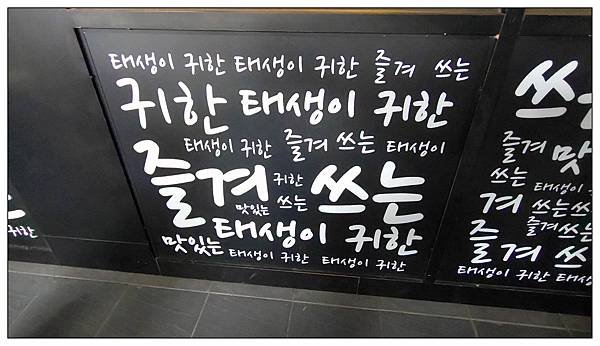 태생이 귀한 태생이 귀한 즐겨 쓰는
귀한 태생이 귀한
태생이 귀한 즐겨 쓰는 태생이
즐겨 귀한 쓰는
맛있는 쓰는
태생이 귀한
맛있는 태생이 귀한 태생이 귀한
귀한
즐겨
쓰는
태생이
겨 쓰는
즐겨 즐겨 쓰는
태생이 귀한